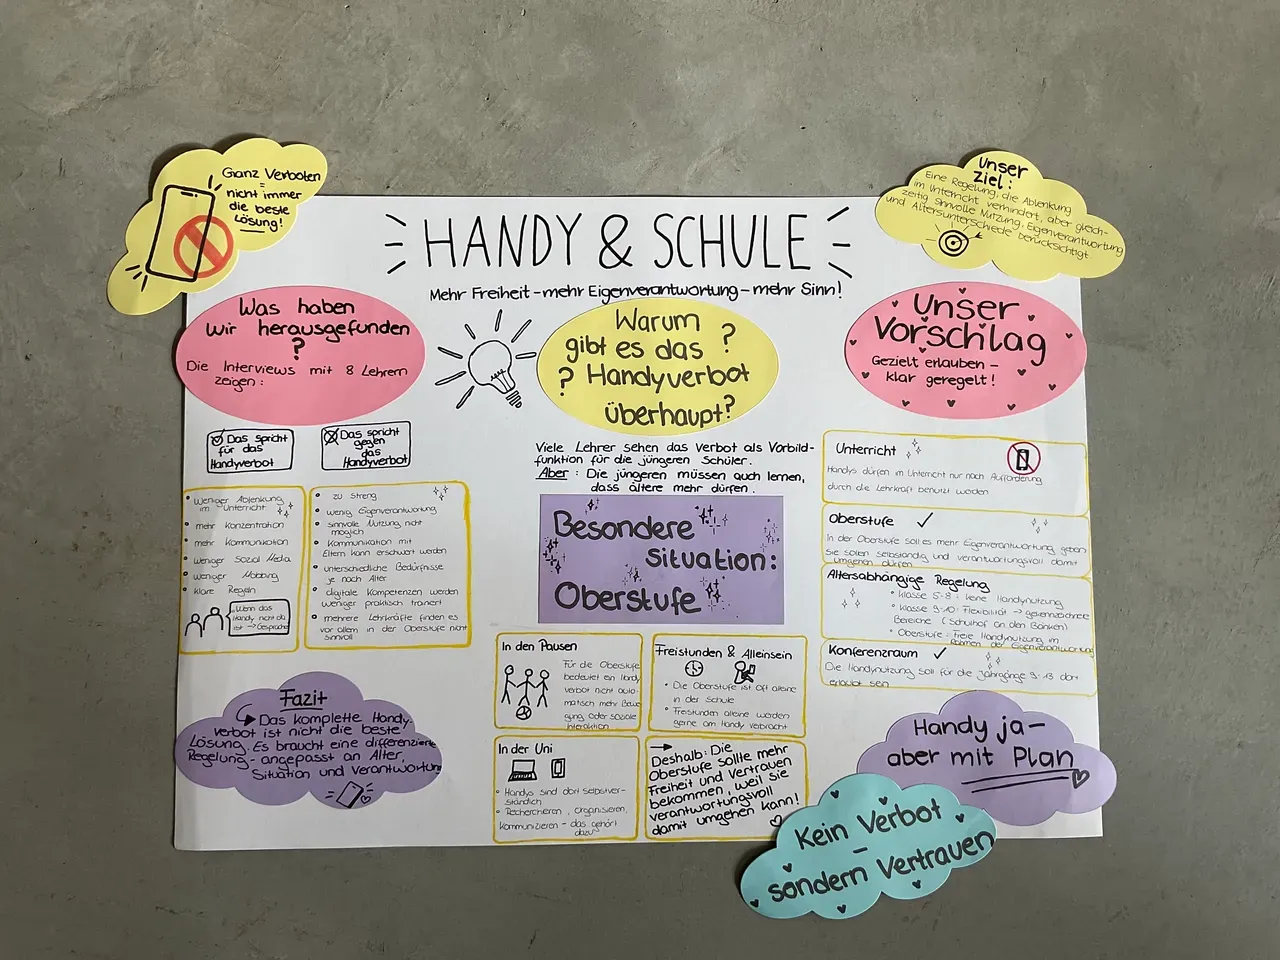 Ganz Verboten
=
nicht immer
die beste
Lösung!
Unser
Ziel:
Eine Regelung, die Ablenkung
im Unterricht verhindert, aber gleich-
zeitig sinnvolle Nutzung, Eigenverantwortung
und Altersunterschiede berücksichtigt
HANDY & SCHULE
Mehr Freiheit - mehr Eigenverantwortung - mehr Sinn!
Was haben
wir herausgefunden
?
Die Interviews mit 8 Lehrern
zeigen:
Das spricht
für das
Handyverbot
Das spricht
gegen
das
Handyverbot
• weniger Ablenkung
im Unterricht
• mehr Konzentration
• mehr Kommunikation
• weniger Sozial Media
• weniger Mobbing
• klare Regeln
Wenn das
Handy nicht da
ist → Gespräche
• zu streng
• wenig Eigenverantwortung
• sinnvolle Nutzung nicht
möglich
• Kommunikation mit
Eltern kann erschwert werden
• unterschiedliche Bedürfnisse
je nach Alter
• digitale Kompetenzen werden
weniger praktisch trainiert
• mehrere Lehrkräfte finden es
vor allem in der Oberstufe nicht
sinnvoll
Fazit
Das komplette Handy-
verbot ist nicht die beste
Lösung. Es braucht eine differenzierte
Regelung - angepasst an Alter,
Situation und Verantwortung
Warum
gibt es das ?
? Handyverbot
überhaupt?
Viele Lehrer sehen das Verbot als Vorbild-
funktion für die jüngeren Schüler.
Aber: Die jüngeren müssen auch lernen,
dass ältere mehr dürfen.
Besondere
Situation:
Oberstufe
In den Pausen
Für die Oberstufe
bedeutet ein Handy
verbot nicht auto-
matisch mehr Bewe
gung oder soziale
Interaktion
Freistunden & Alleinsein
• Die Oberstufe ist oft alleine
in der Schule
• Freistunden alleine werden
gerne am Handy verbracht
In der Uni
• Handys sind dort selbstver-
ständlich
• Recherchieren, Organisieren,
Kommunizieren - das gehört
dazu
→ Deshalb: Die
Oberstufe sollte mehr
Freiheit und Vertrauen
bekommen, weil sie
verantwortungsvoll
damit umgehen kann!
Unser
Vorschlag
Gezielt erlauben -
klar geregelt!
Unterricht
Handys dürfen im Unterricht nur nach Aufforderung
durch die Lehrkraft benutzt werden
Oberstufe ✓
In der Oberstufe soll es mehr Eigenverantwortung geben
Sie sollen selbständig und verantwortungsvoll damit
umgehen dürfen
Altersabhängige Regelung
• Klasse 5-8: keine Handynutzung
• Klasse 9-10: Flexibilität → gekennzeichnete
Bereiche (Schulhof an den Bänken)
• Oberstufe: freie Handynutzung im
Rahmen der Eigenverantwortung
Konferenzraum ✓
Die Handynutzung soll für die Jahrgänge 9-13 dort
erlaubt sein
Handy ja -
aber mit Plan
Kein Verbot
-
sondern Vertrauen